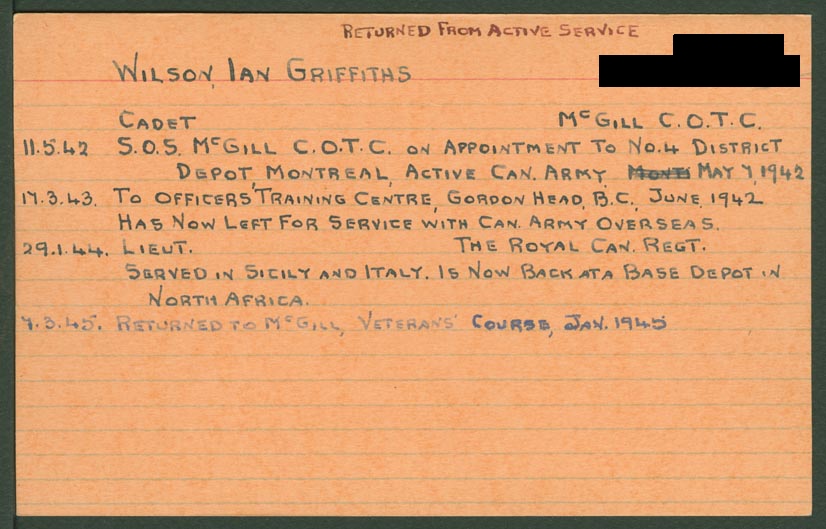 RETURNED FROM ACTIVE SERVICE
WILSON, IAN GRIFFITHS
CADET McGILL C.O.T.C.
11.5.42 S.O.S. McGILL C.O.T.C. ON APPOINTMENT TO NO.4 DISTRICT
DEPOT MONTREAL, ACTIVE CAN. ARMY. MAY 7, 1942
17.3.43. TO OFFICERS' TRAINING CENTRE, GORDON HEAD, B.C., JUNE 1942
HAS NOW LEFT FOR SERVICE WITH CAN. ARMY OVERSEAS.
29.1.44. LIEUT. THE ROYAL CAN. REGT.
SERVED IN SICILY AND ITALY. IS NOW BACK AT A BASE DEPOT IN
NORTH AFRICA.
7.3.45. RETURNED TO McGILL, VETERANS' COURSE, JAN. 1945